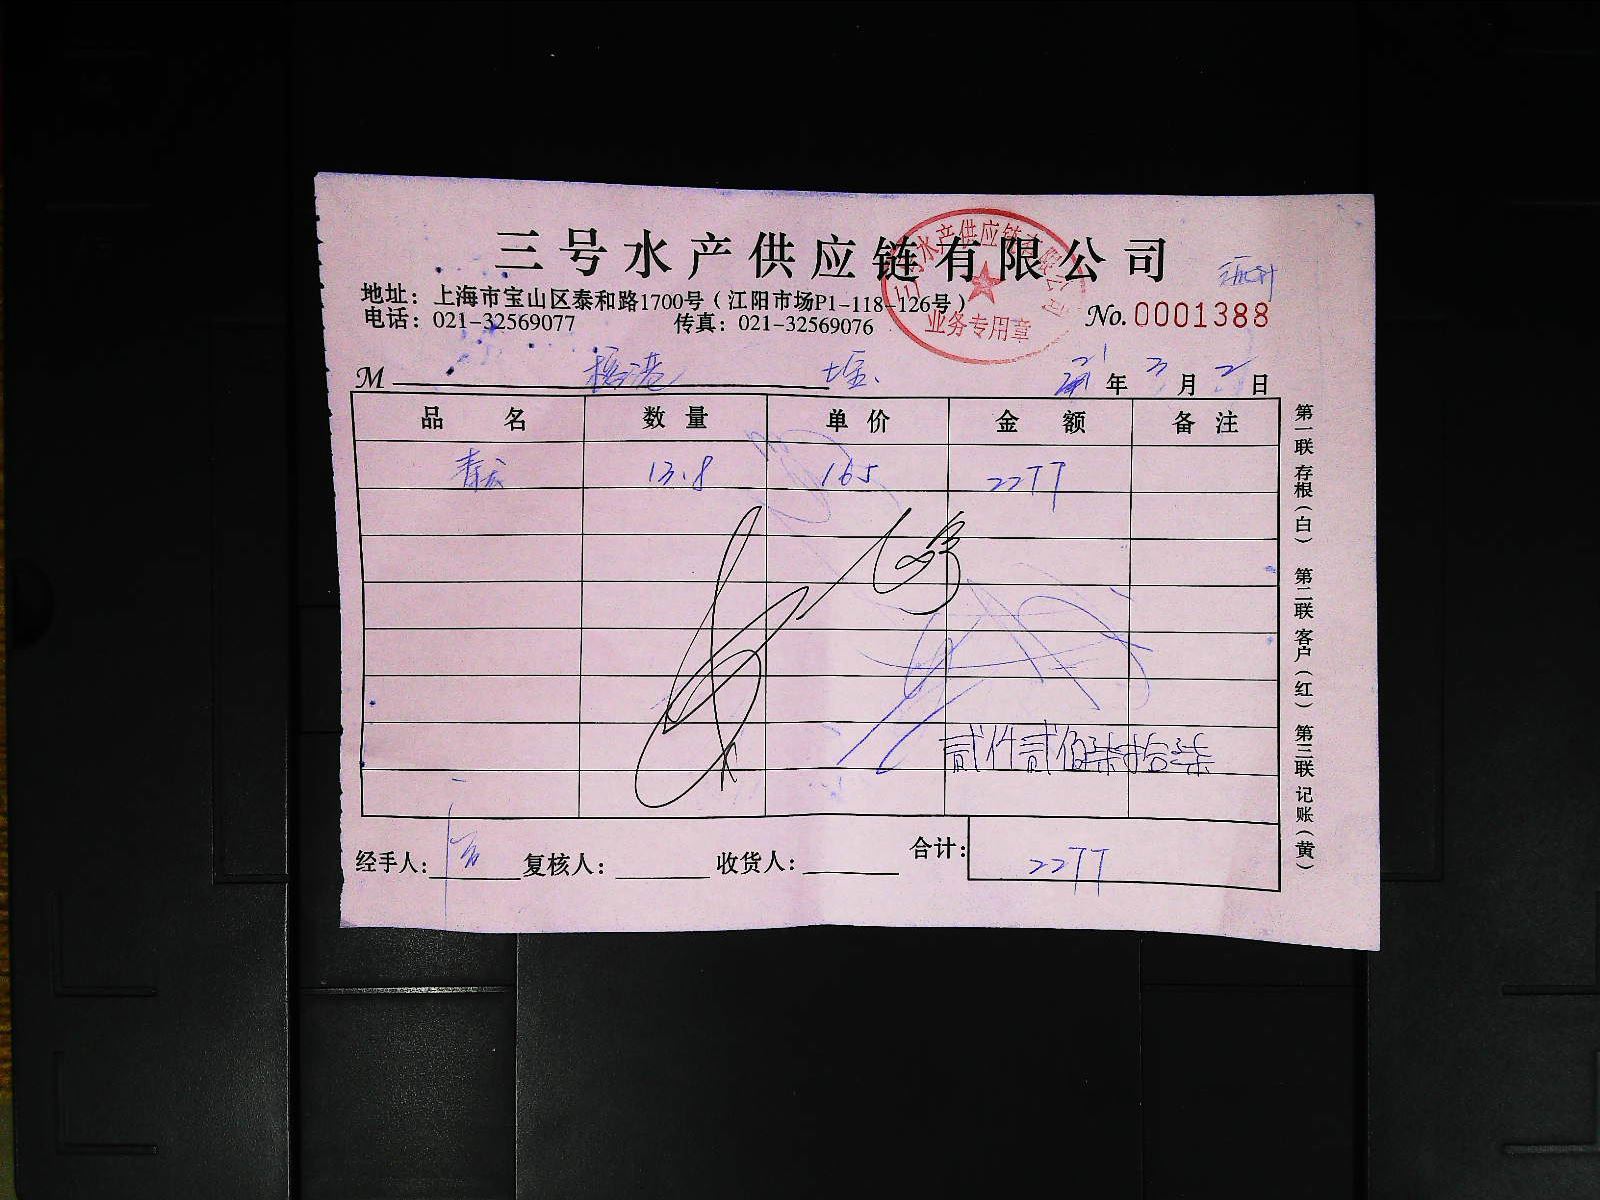 三号水产供应链有限公司
三号水产供应链有限公司
业务专用章
地址：上海市宝山区泰和路1700号（江阳市场P1-118-126号）
电话：021-32569077 传真：021-32569076
No. 0001388
M
21年3月2日
品名 数量 单价 金额 备注
青 13.8 165 2277
贰仟贰佰柒拾柒
经手人： 复核人： 收货人： 合计： 2277
第一联 存根（白） 第二联 客户（红） 第三联 记账（黄）